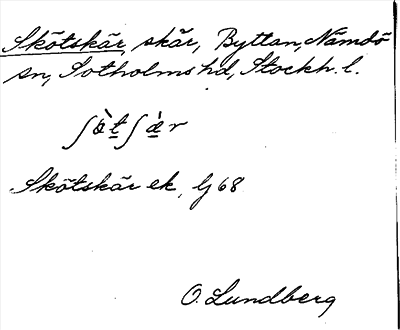 Skötskär, skär, Byttan, Nämdö
sn, Sotholms hd, Stockh. l.
ʃö̀tʃæ̀r
Skötskär ek, Gj 68
O. Lundberg